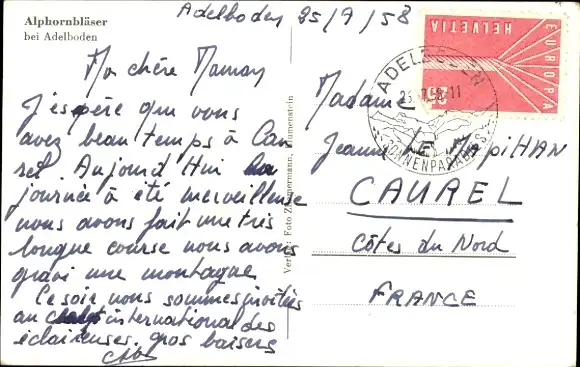 Alphornbläser
bei Adelboden
Adelboden 25/7/58
Ma chère Maman
J'espère que vous
avez beau temps à Cau
rel. Aujourd Hui la
journée à été merveilleuse
nous avons fait une très
longue course nous avons
gravi une montagne
Ce soir nous sommes invitées
au chalet international des
éclaireuses. gros baisers
Verlag: Foto Zimmermann, Blumenstein
HELVETIA
EUROPA
ADELBODEN
25.7.58-11
SONNENPARADIES
Madame
Jeanne
CAUREL
Côtes du Nord
FRANCE